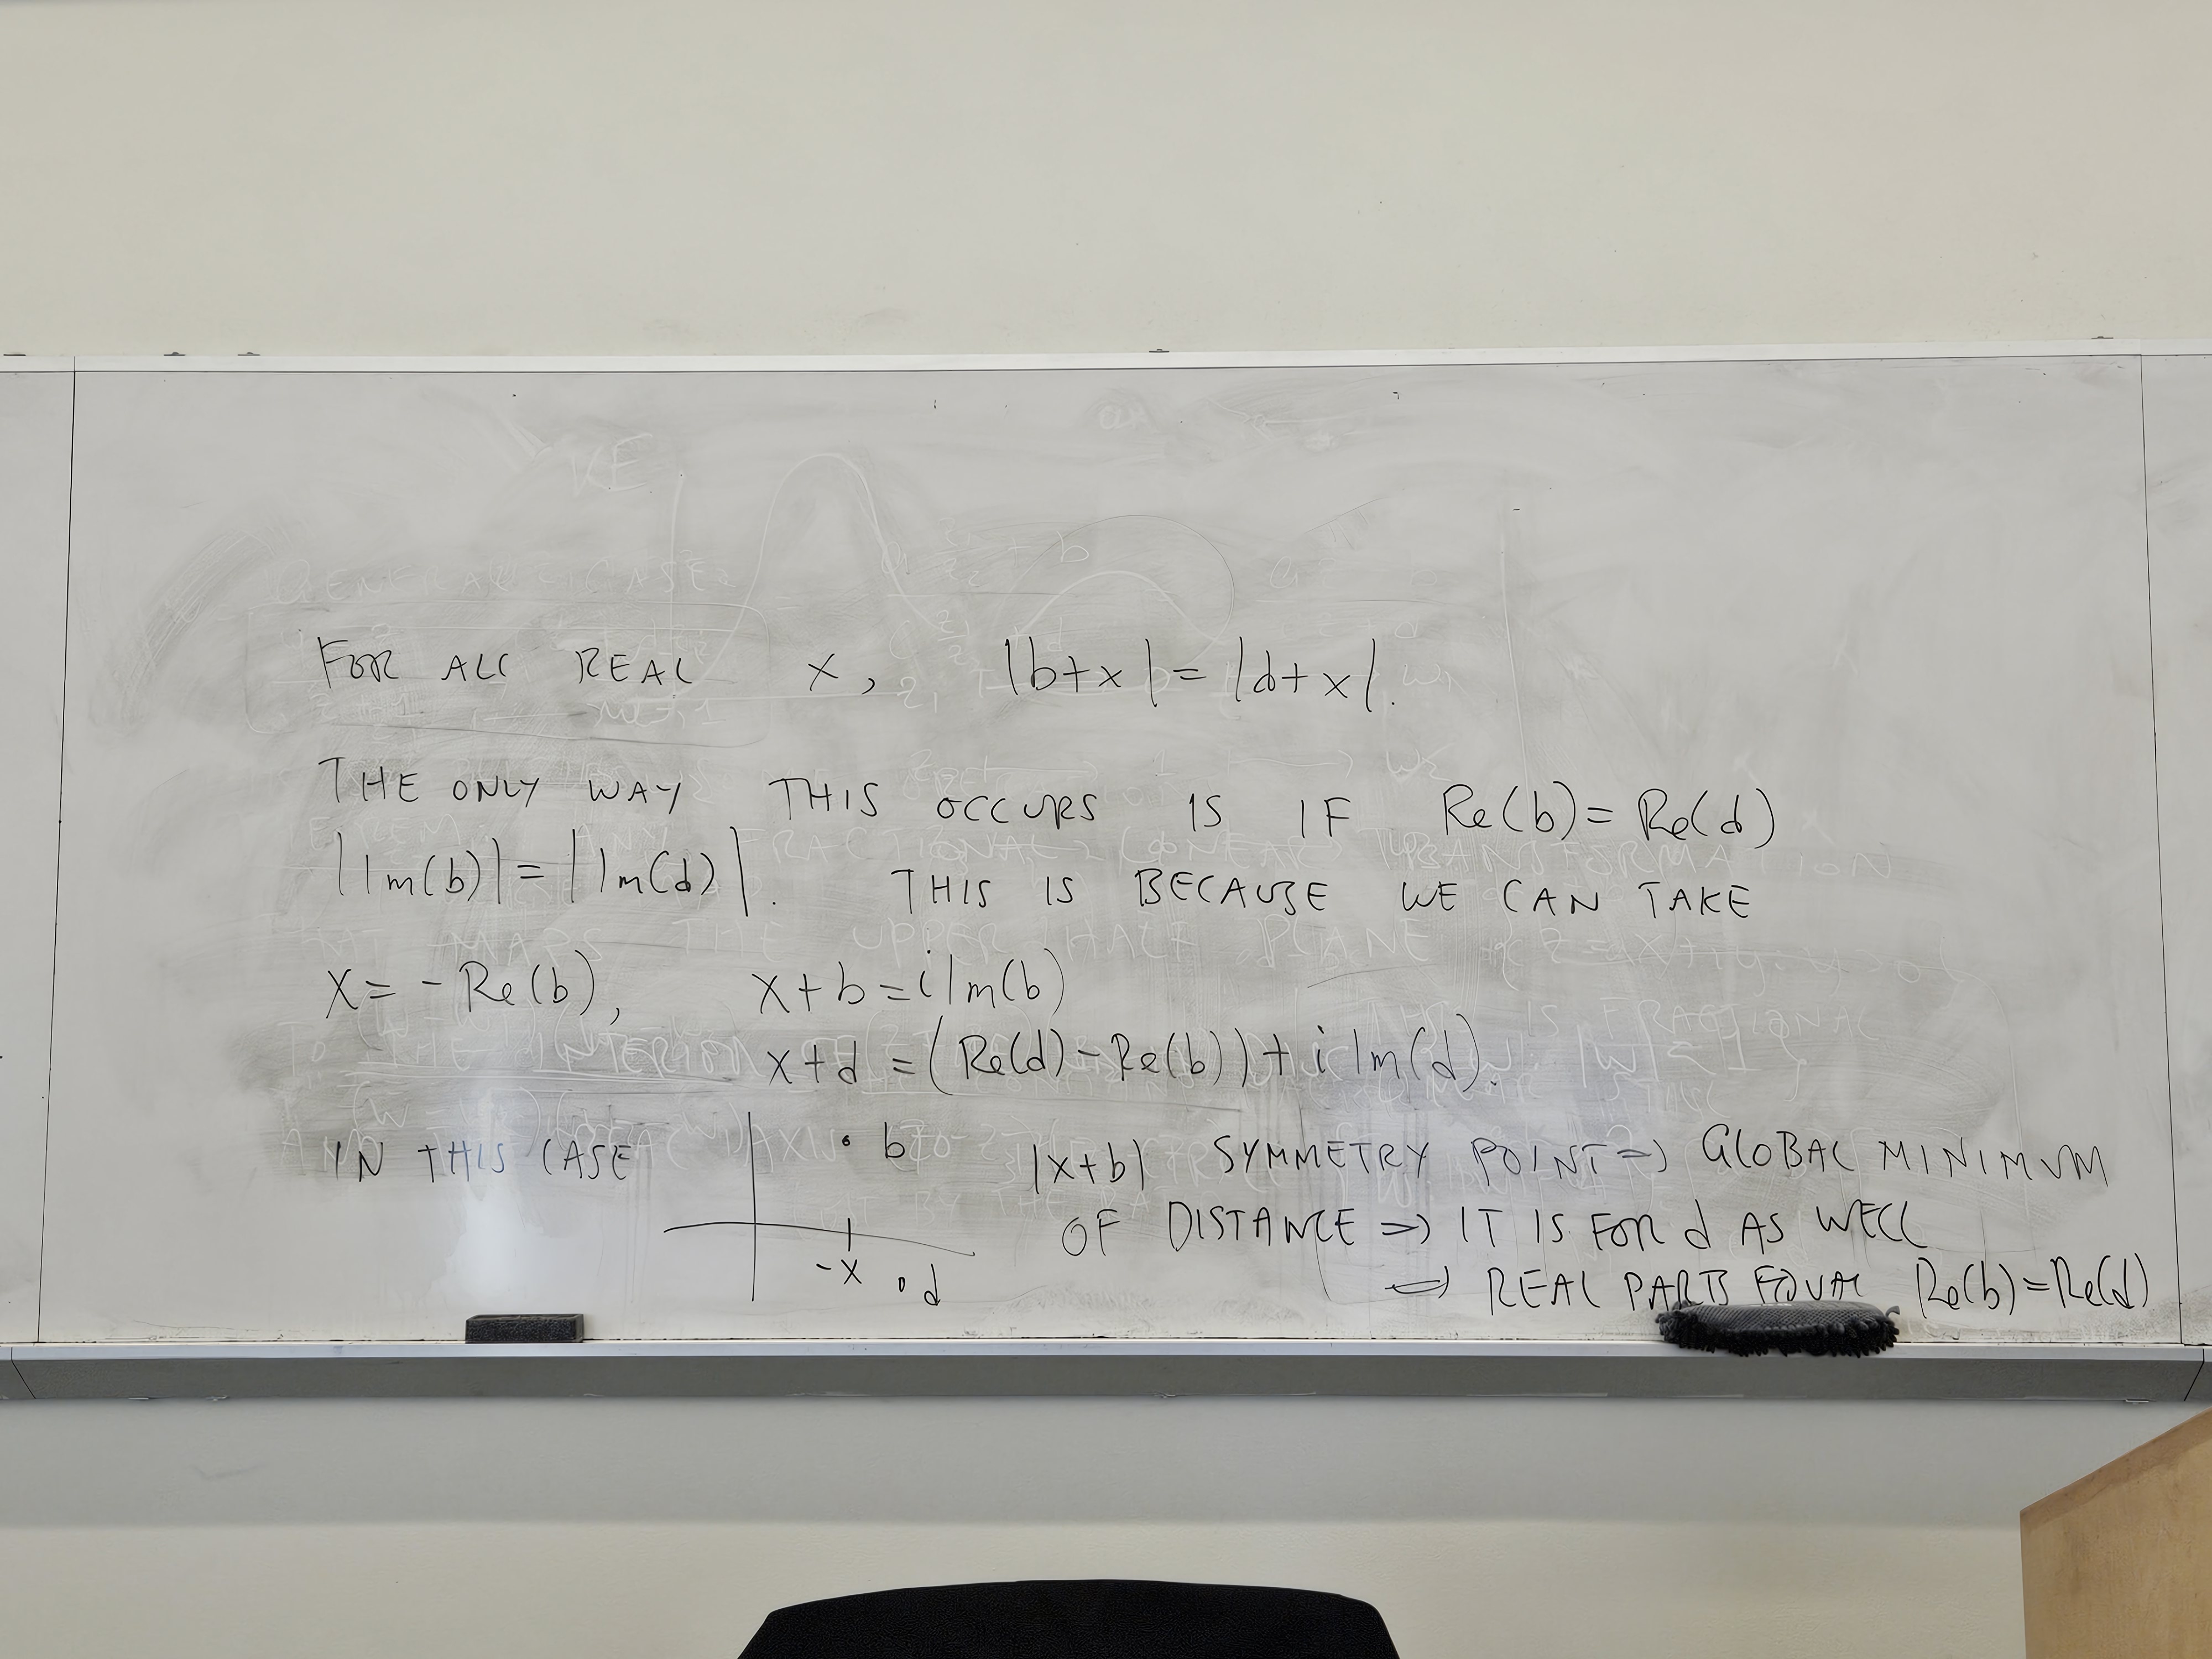 FOR ALL REAL x, |b+x|=|d+x|.
THE ONLY WAY THIS OCCURS IS IF Re(b)=Re(d)
|Im(b)|=|Im(d)|. THIS IS BECAUSE WE CAN TAKE
x=-Re(b), x+b=iIm(b)
x+d=(Re(d)-Re(b))+iIm(d).
IN THIS CASE
b
-x
d
|x+b| SYMMETRY POINT => GLOBAL MINIMUM
OF DISTANCE => IT IS FOR d AS WELL
=> REAL PARTS EQUAL Re(b)=Re(d)